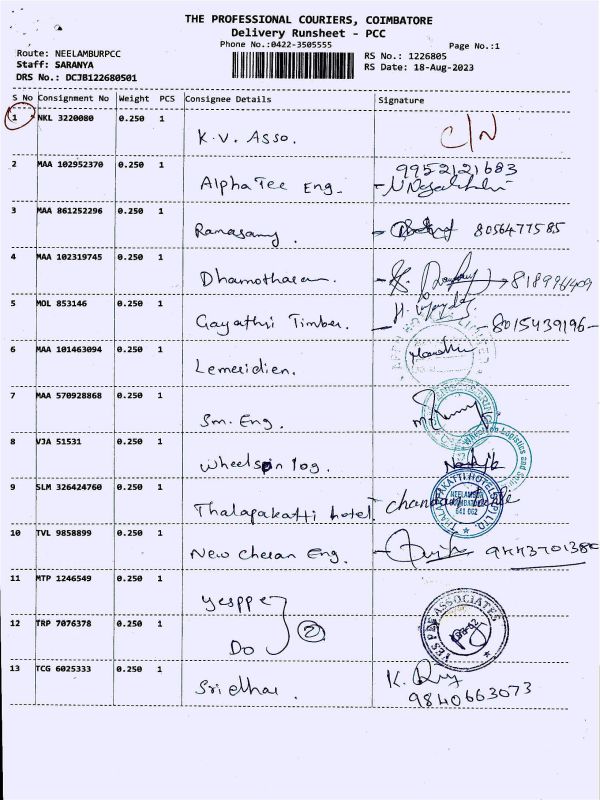 THE PROFESSIONAL COURIERS, COIMBATORE
Delivery Runsheet - PCC
Phone No.:0422-3505555
Page No.:1
Route: NEELAMBURPCC
RS No.: 1226805
Staff: SARANYA
RS Date: 18-Aug-2023
DRS No.: DCJB122680501
S No Consignment No Weight PCS Consignee Details Signature
1 NKL 3220080 0.250 1
K.V. Asso. C/N
2 MAA 102952370 0.250 1 9952121683
AlphaTec Eng.
3 MAA 861252296 0.250 1
Ramasamy. 8056477585
4 MAA 102319745 0.250 1
Dhamotharan.
5 MOL 853146 0.250 1
Gayathri Timber. 8015439196
6 MAA 101463094 0.250 1
Lemeridien.
7 MAA 570928868 0.250 1
Sm. Eng.
8 VJA 51531 0.250 1
Wheelspin log. Logistics and
9 SLM 326424760 0.250 1
Thalapakatti hotel.
THALAPAKATTI HOTELS (P) LTD.
NEELAMBUR
COIMBATORE
641 062
10 TVL 9858899 0.250 1
New Cheran Eng.
11 MTP 1246549 0.250 1
yesppe
12 TRP 7076378 0.250 1
Do
2
YES PEE ASSOCIATES
13 TCG 6025333 0.250 1
Sridhar.
9840663073